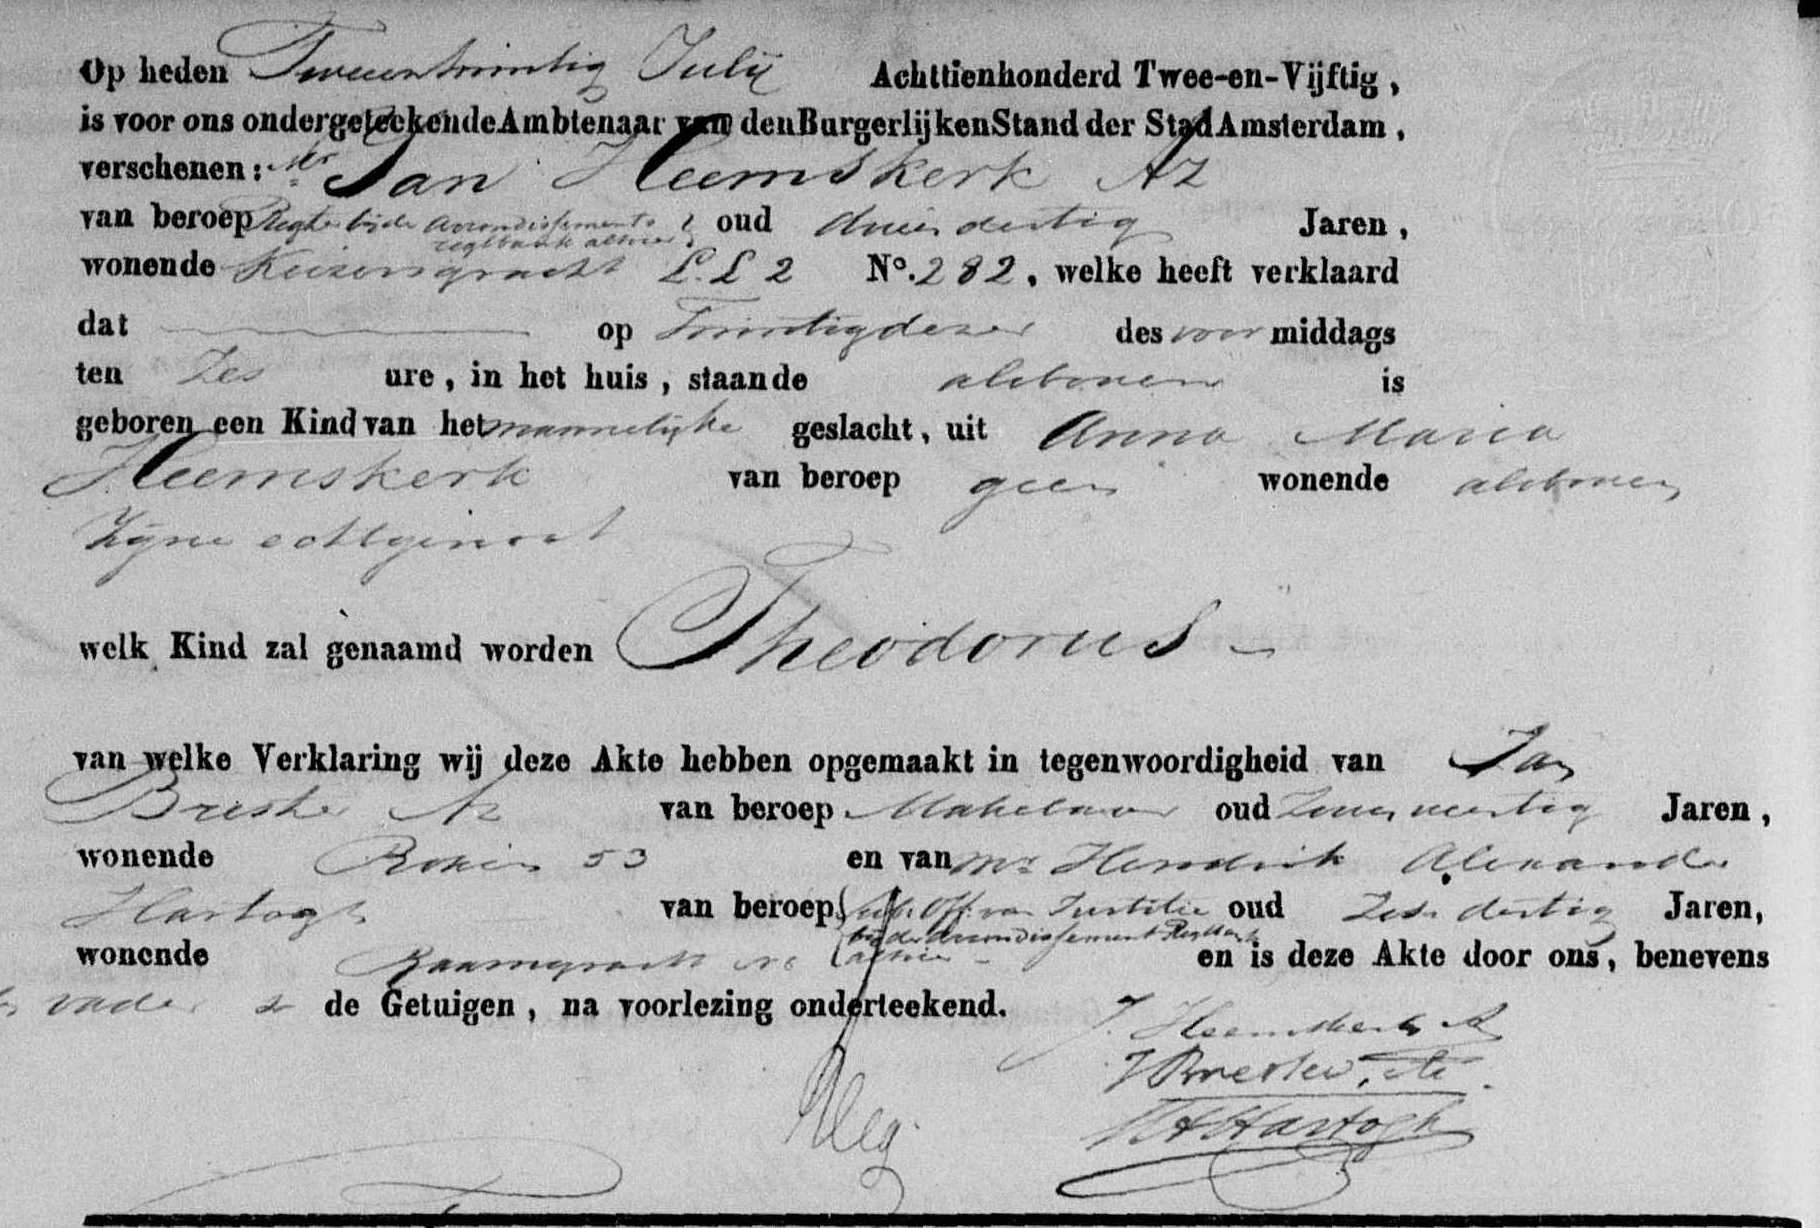 Op heden Tweeentwintig Julij Achttienhonderd Twee-en-Vijftig,
is voor ons ondergeteekende Ambtenaar van den Burgerlijken Stand der Stad Amsterdam,
verschenen: Mr Jan Heemskerk Az
van beroep Regter bij de Arrondissements regtbank alhier oud drieendertig Jaren,
wonende Keizersgracht L. L 2 No. 282, welke heeft verklaard
dat op Twintig dezer des voor middags
ten Zes ure, in het huis, staande alsboven is
geboren een Kind van het mannelijke geslacht, uit Anna Maria
Heemskerk van beroep geen wonende alsboven
Zijne echtgenoot
welk Kind zal genaamd worden Theodorus
van welke Verklaring wij deze Akte hebben opgemaakt in tegenwoordigheid van Jan
Brester Az van beroep Makelaar oud Zevenveertig Jaren,
wonende Rokin 53 en van Mr Hendrik Alexander
Hartogh van beroep Sub. Off. van Justitie oud Zesendertig Jaren,
bij de Arrondissement Regtbank
alhier
wonende Raamgracht en is deze Akte door ons, benevens
vader & de Getuigen, na voorlezing onderteekend.
J. Heemskerk Az
J Brester. Az.
HA Hartogh